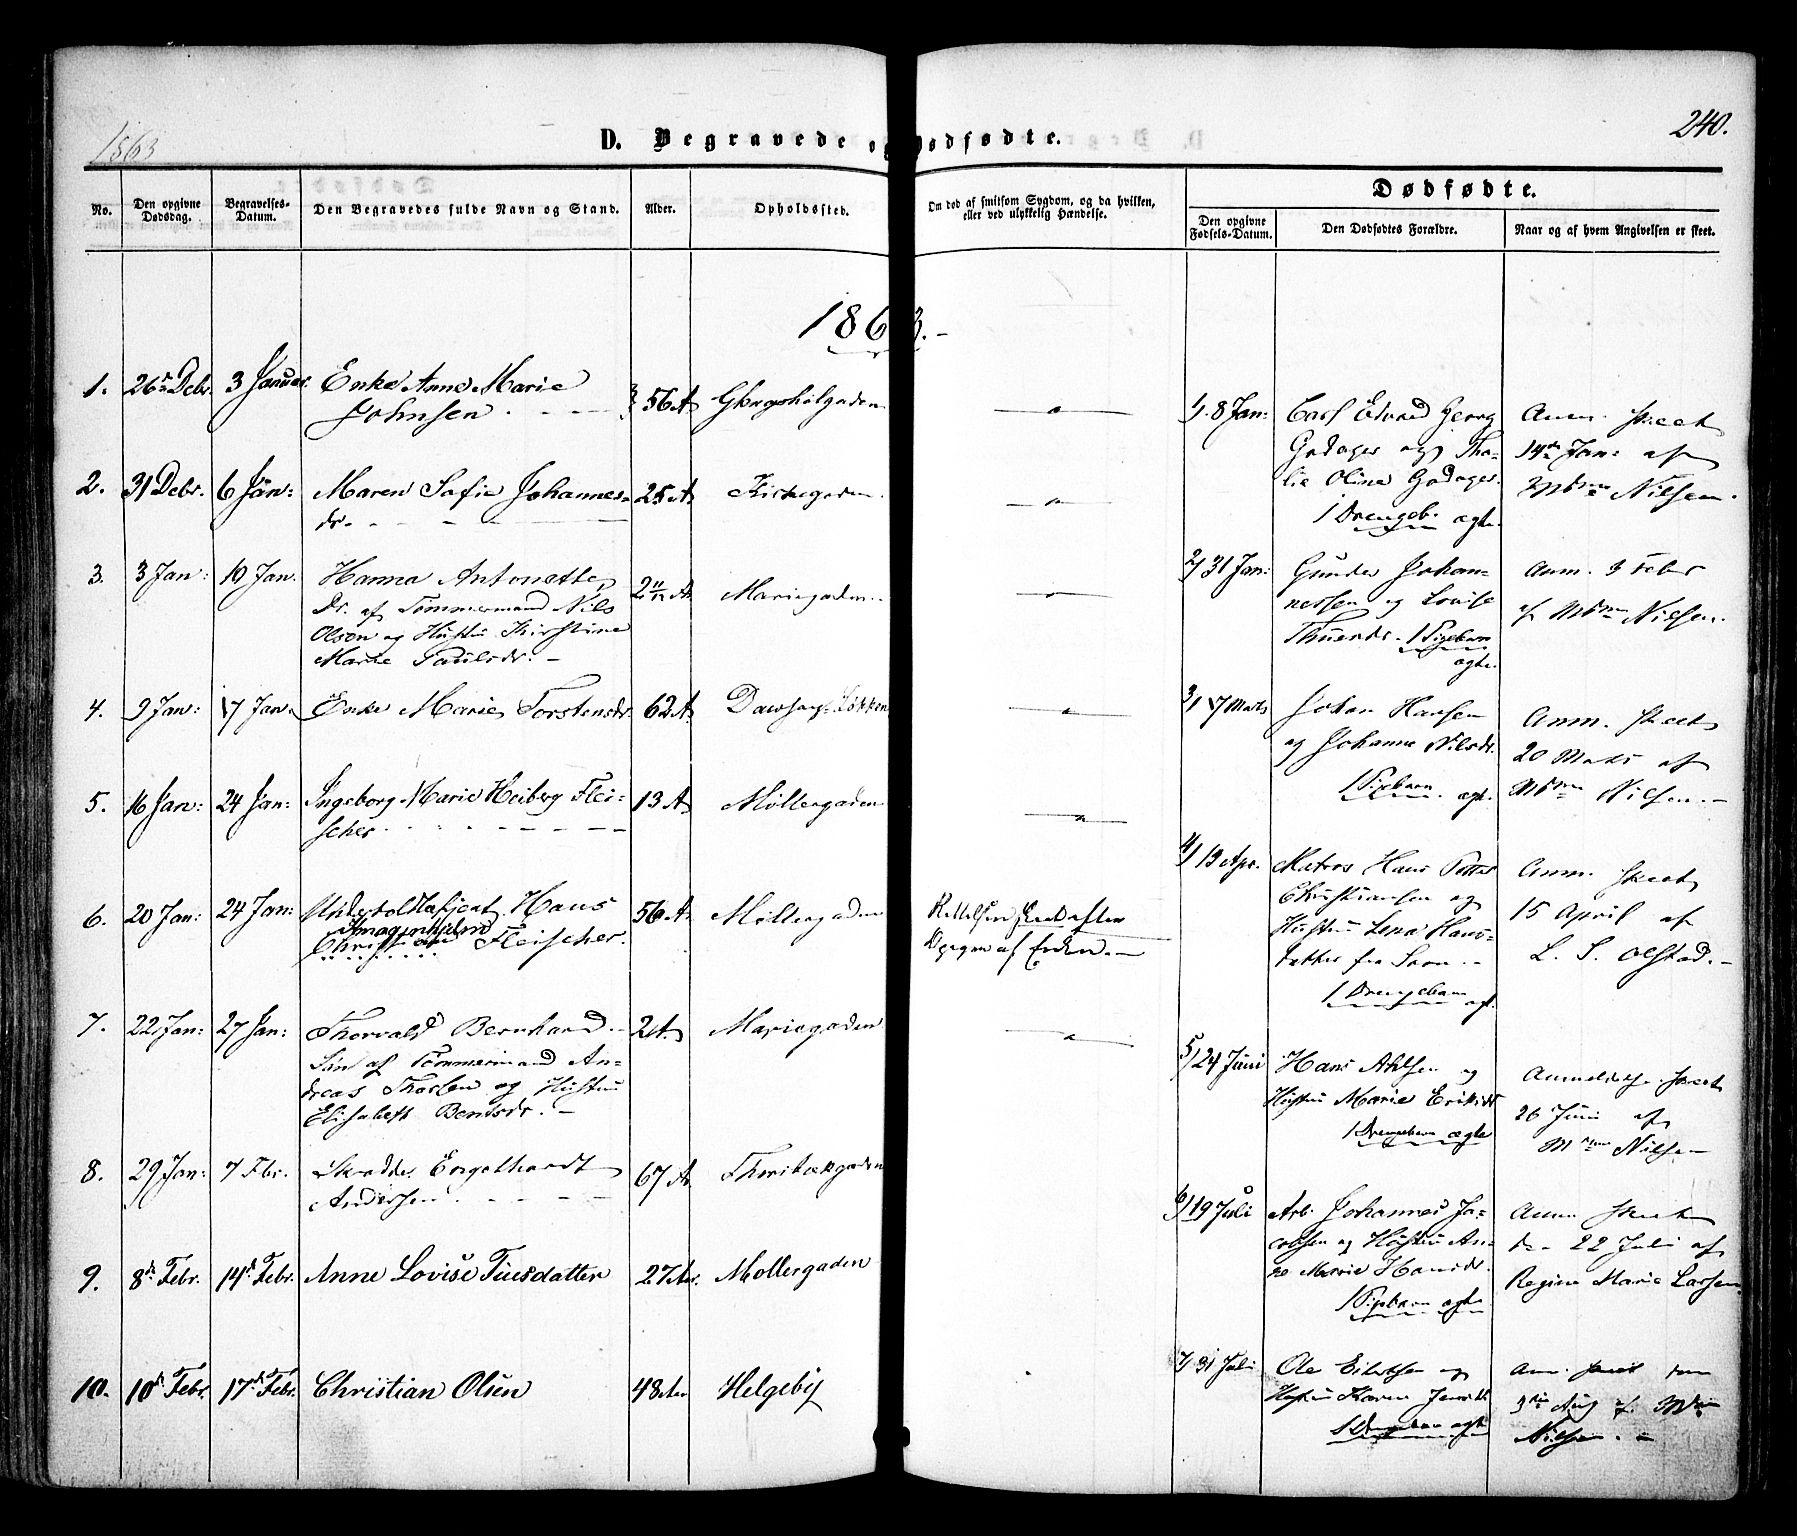 1863
240.
D. Begravede og Dødfødte.
No.
Den opgivne Dødsdag.
Begravelses-Datum.
Den Begravedes fulde Navn og Stand.
Alder.
Opholdssted.
Om død af smitsom Sygdom, og da hvilken, eller ved ulykkelig Hændelse.
Dødfødte.
Den opgivne Fødsels-Datum.
Den Dødfødtes Forældre.
Naar og af hvem Angivelsen er skeet.
1863.-
1. 26de Debr. 3 Januar. Enke Anne Marie
Johnsen 56 A
2. 31 Debr. 6 Jan: Maren Sofie Johannes-
dr. 25 A Kirkegaden
3. 3 Jan: 10 Jan. Hanna Antonette,
Dr. af Tømmermand Nils
Olsen og Hustru Kirstine
Marie Paulsdr. 2 11/12 A Mariegaden
4. 9 Jan: 17 Jan. Enke Marie Torstensdr. 62 A
5. 16 Jan: 24 Jan: Ingeborg Marie Heiberg Flei-
scher 13 A Møllergaden
6. 20 Jan: 24 Jan: Undertoldbetjent Hans
Christian Fleischer. 56 A Møllergaden
7. 22 Jan: 27 Jan: Thorvald Bernhard
Søn af Tømmermand An-
dreas Thorsen og Hustru
Elisabeth Bentsdr. 2 A. Mariegaden
8. 29 Jan: 7 Fbr. Engelhardt
Andersen 67 A
9. 8de Febr. 14de Febr. Anne Lovise Tuesdatter 27 Aar. Møllergaden
10. 10de Febr. 17de Febr. Christian Olsen 48 Aar Helgeby
1/ 8 Jan: Carl Edvard Georg
Godager og Tha-
lie Oline Godager.
1 Drengeb. ægte.
Anm. skeet
14de Jan: af
Mdme Nilsen.
2/ 31 Jan: Gunder Johan-
nessen og Lovise
1 Pigebarn
ægte.
Anm. 3 Febr
af Mdme Nilsen.
3/ 17 Marts Johan Hansen
og Johanne Nilsdr.
1 Pigebarn ægte.
Anm. skeet
20 Marts af
Mdme Nilsen.-
4/ 13 Apr. Matros Hans Petter
Christiansen og
Hustru Lena Hans-
datter fra
1 Drengebarn ægt.
Anm. skeet
15 April af
L. S. Olstad.-
5/ 24 Juni Hans Ahlsen og
Hustru Marie Eriksdr
1 Drengebarn ægte
Anmeldelse skeet
26 Juni af
Mdme Nilsen
6/ 19 Juli Arb. Johannes Ja-
cobsen og Hustru An-
ne Marie Hansdr.
1 Pigebarn ægte.
Anm skeet
d. 22 Juli af
Regine Marie Larsen.
7/ 31 Juli Ole Eilertsen og
Hustru Karen
1 Drengebarn ægte
Anm. skeet den
3die Aug af Mdm
Nilsen.